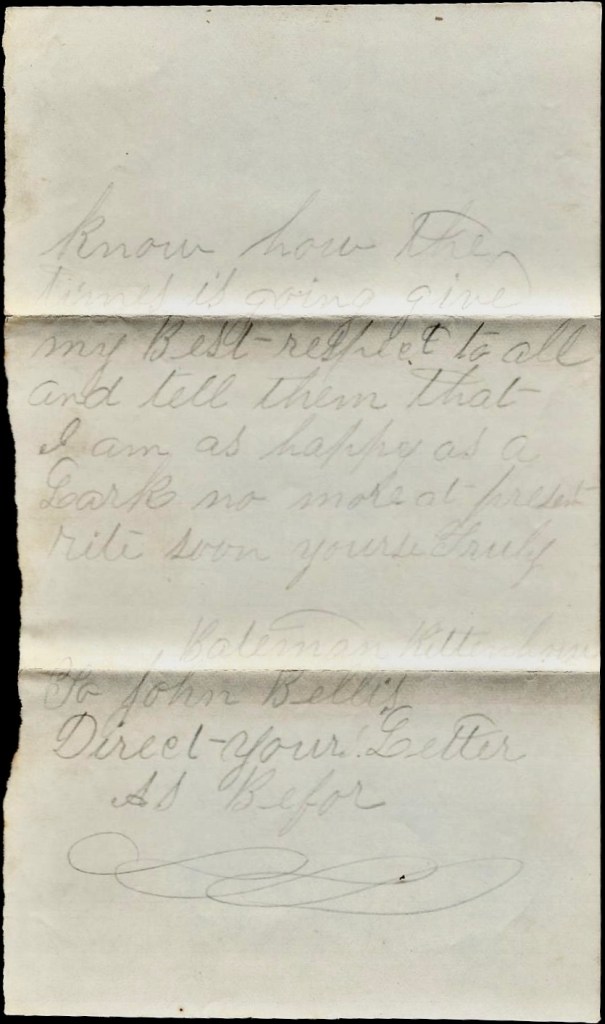 know how the
times is going give
my Best respect to all
and tell them that
I am as happy as a
Lark no more at present
rite soon yourse Truly
Bateman Rittenhous
To John Bellis
Direct your Letter
As Befor